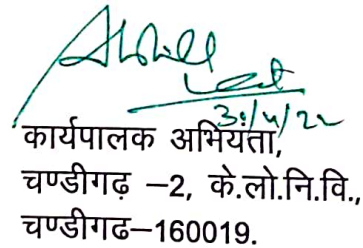 कार्यपालक अभियंता,
चण्डीगढ़ –2, के.लो.नि.वि.,
चण्डीगढ–160019.